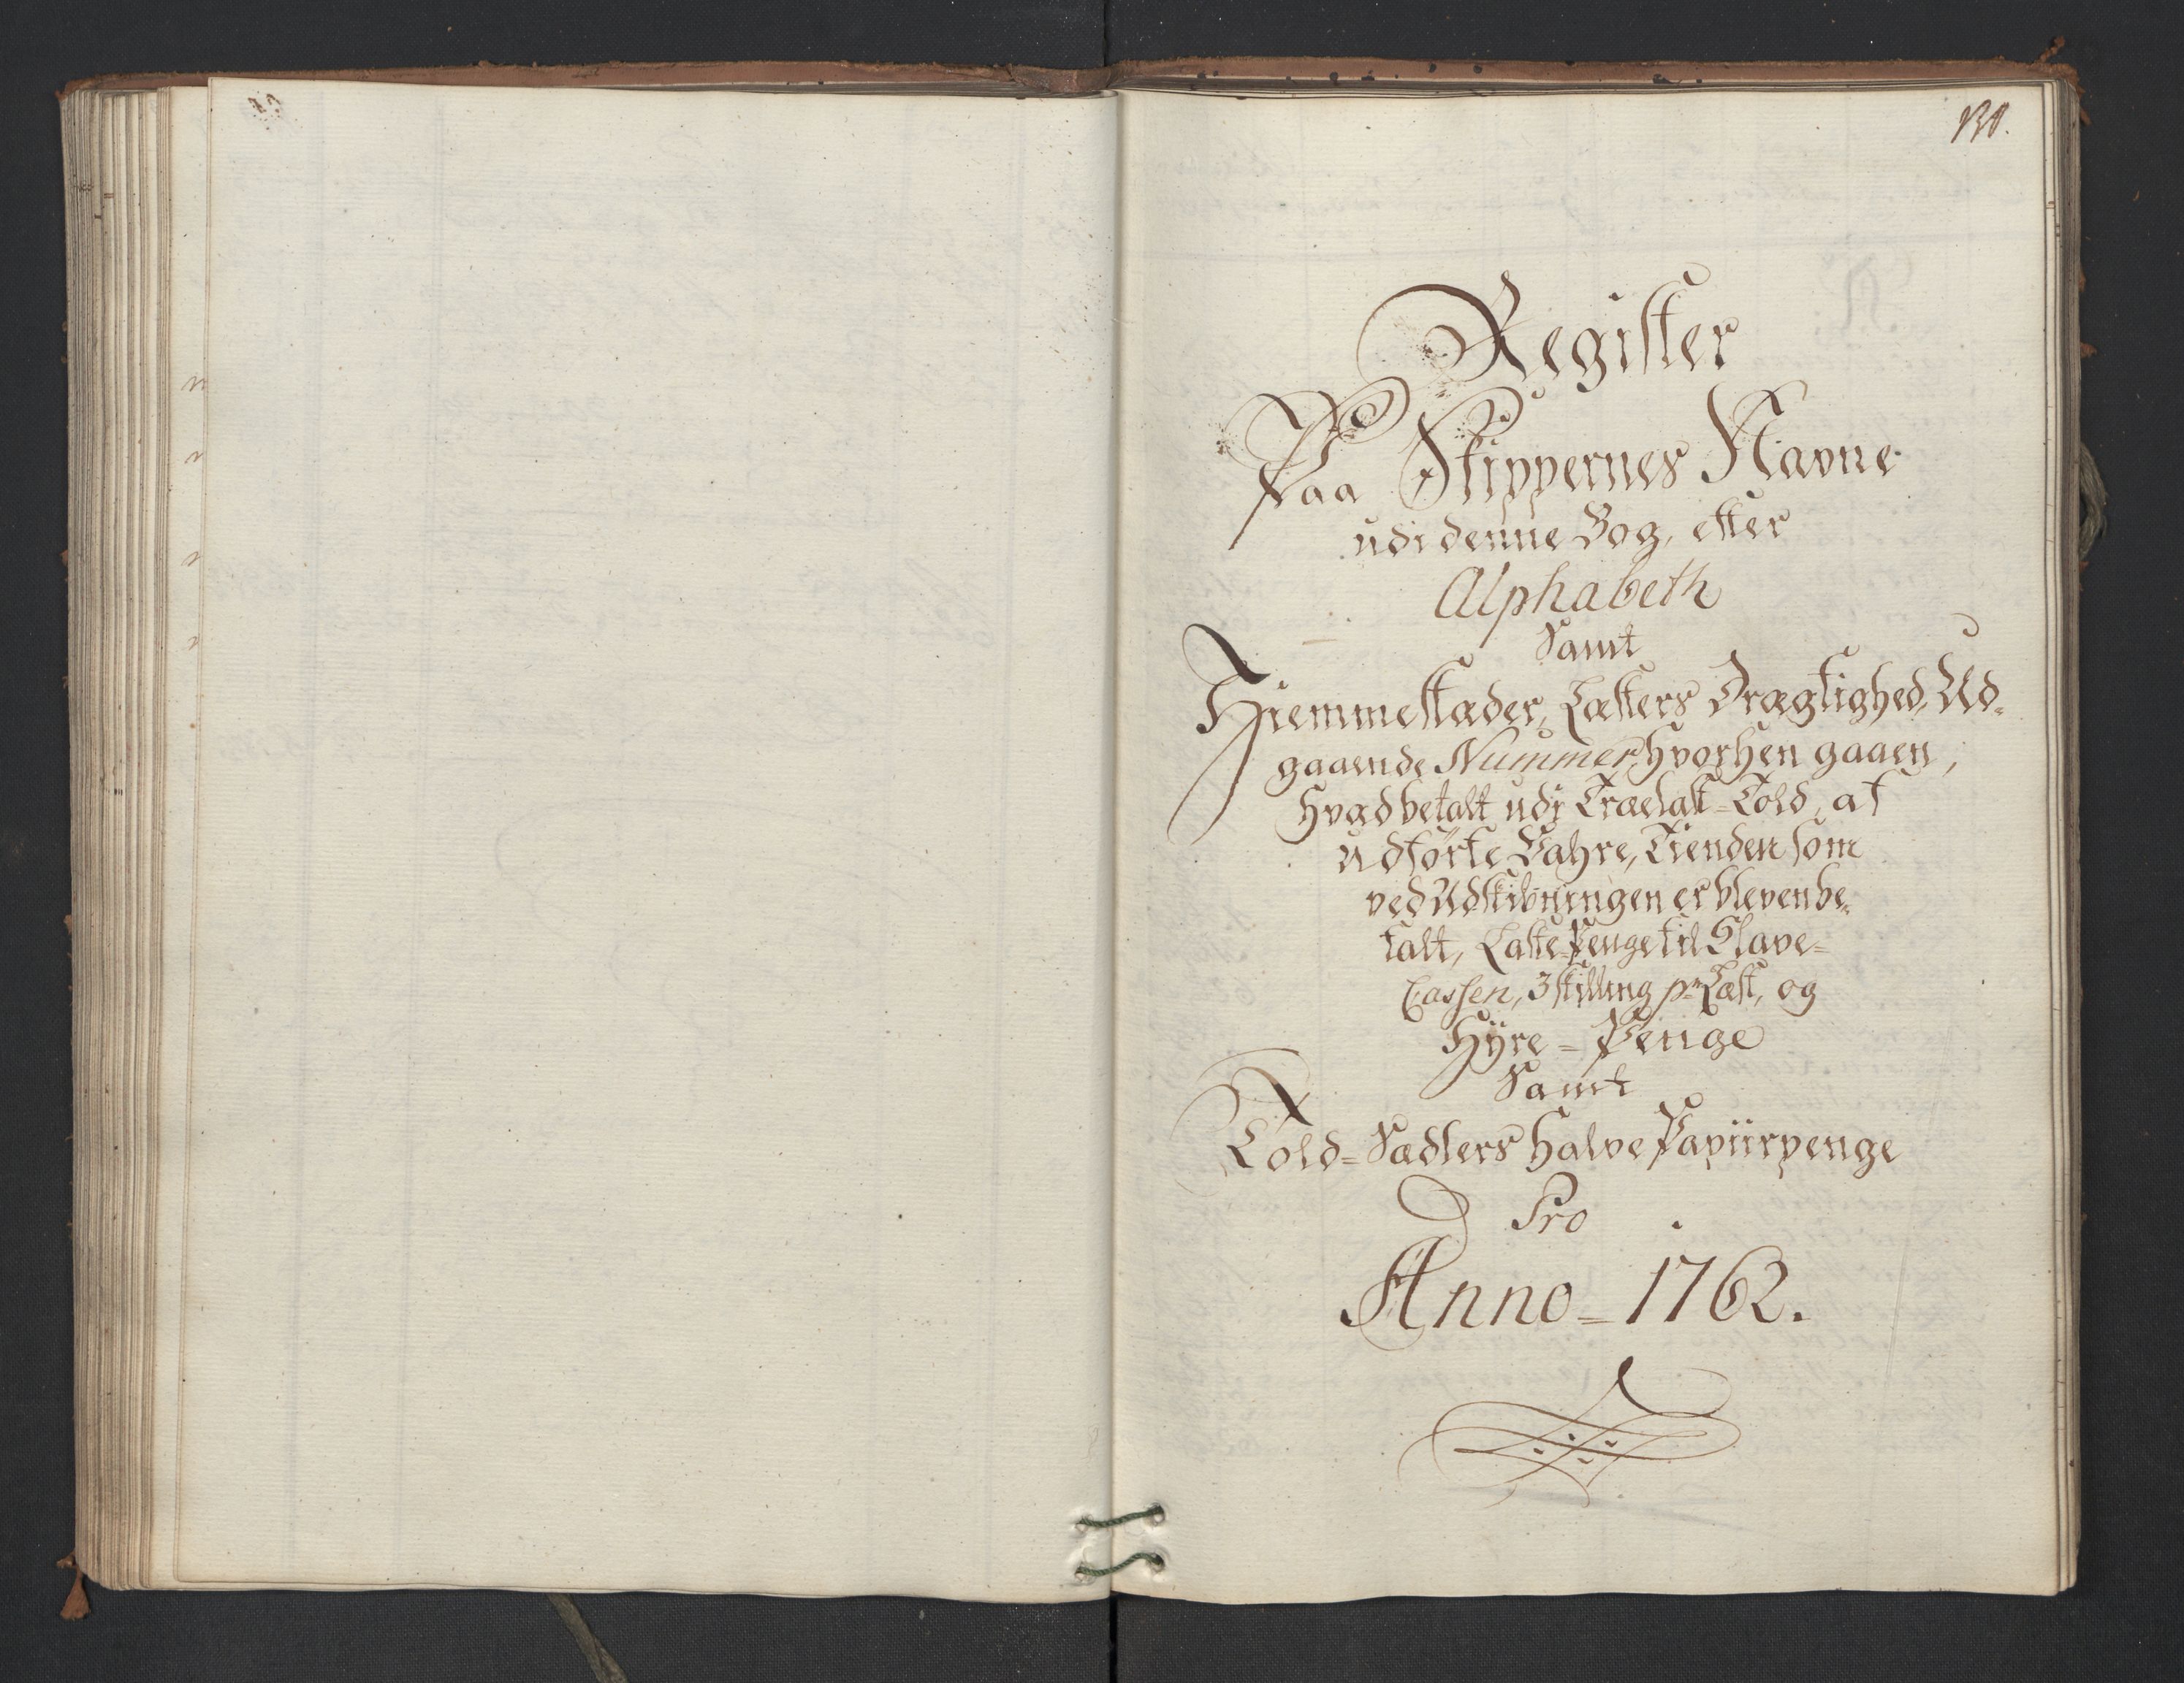 130.
Register
Paa Skippernes Navne
udi denne Bog, efter
Alphabeth
Samt
Hiemmestæder, Læsters Drægtighed, Ud-
gaaende Nummer, hvorhen gaaen,
hvad betalt udj Trælast-Told, af
udførte Vahre, Tienden som
ved Udskibningen er bleven be-
talt, Læste-Penge til Slave-
Cassen, 3 skilling pr Læst, og
Hÿre-Penge
Samt
Told-Sædlers halve Papiirpenge
Pro
Anno-1762.